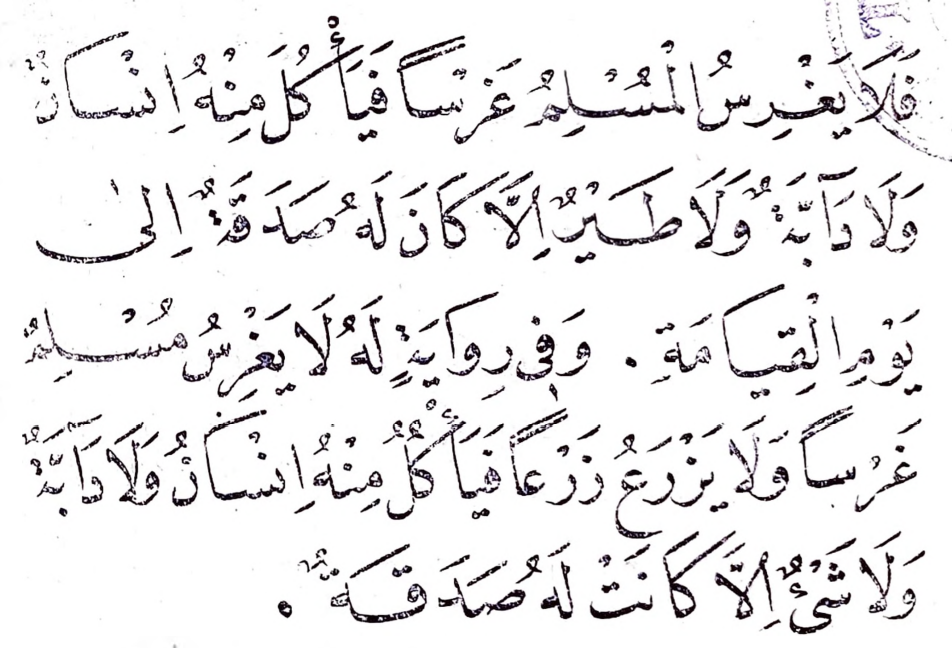 فَلَا يَغْرِسُ الْمُسْلِمُ غَرْسًا فَيَأْكُلَ مِنْهُ اِنْسَانٌ
وَلَا دَآبَّةٌ وَلَا طَيْرٌ اِلَّا كَانَ لَهُ صَدَقَةٌ اِلىٰ
يَوْمِ الْقِيَامَةِ . وَفِى رِوَايَةٍ لَهُ لَا يَغْرِسُ مُسْلِمٌ
غَرْسًا وَلَا يَزْرَعُ زَرْعًا فَيَأْكُلُ مِنْهُ اِنْسَانٌ وَلَا دَآبَّةٌ
وَلَا شَىْءٌ اِلَّا كَانَتْ لَهُ صَدَقَةٌ .